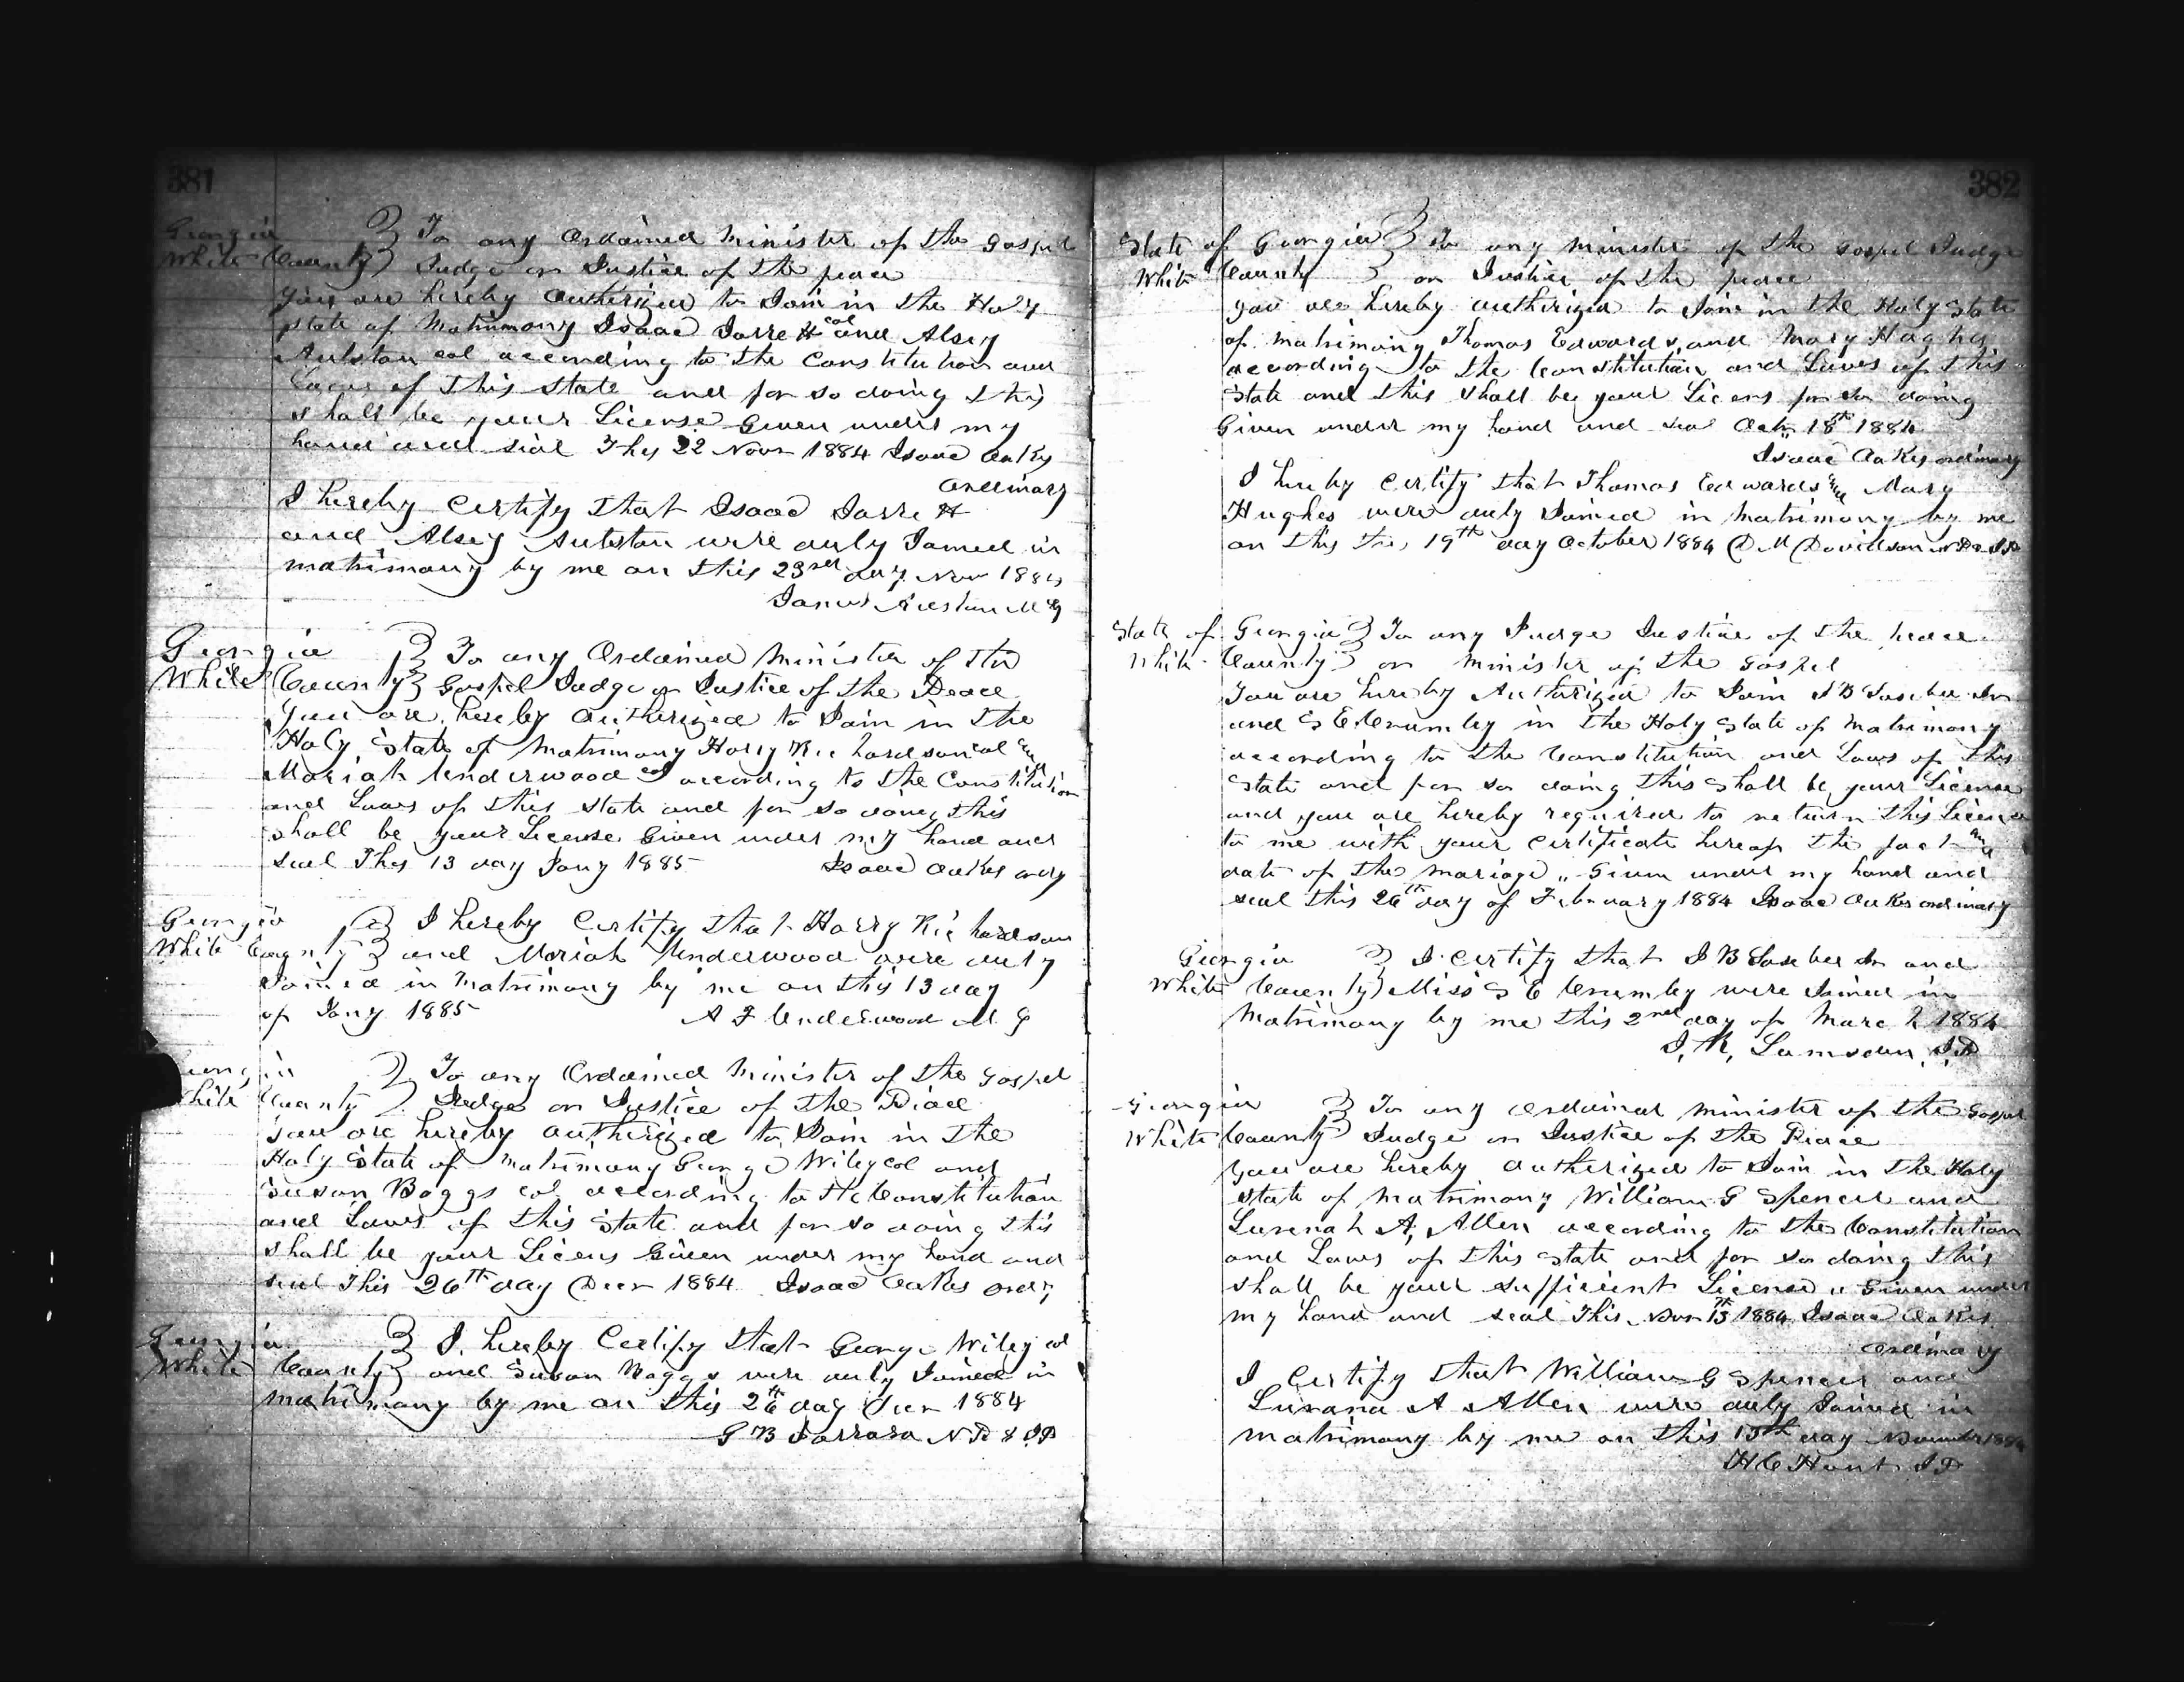 381
Georgia } To any Ordained Minister of the Gospel
White County } Judge or Justice of the peace
You are hereby Authorized to Join in the Holy
state of Matrimony Isaac Jarrett col and Alsey
col according to the Constitution and
Laws of this State and for so doing this
shall be your License Given under my
hand and seal This 22 Novr 1884 Isaac Oakes
Ordinary
I hereby Certify that Isaac Jarrett
and Alsey were duly Joined in
matrimony by me on this 23rd day Nov 1884
James M G
Georgia } To any Ordained Minister of the
White County } Gospel Judge or Justice of the Peace
You are hereby Authorized to Join in the
Holy State of Matrimony Harry Richardson col and
Moriah Underwood col according to the Constitution
and Laws of this State and for so doing this
shall be your License Given under my hand and
seal This 13 day Jany 1885 Isaac Oakes ordy
Georgia } I hereby Certify that Harry Richardson
White County } and Moriah Underwood were duly
Joined in Matrimony by me on this 13 day
of Jany 1885 A F Underwood M G
Georgia } To any Ordained Minister of the Gospel
White County } Judge or Justice of the Peace
You are hereby authorized to Join in the
Holy State of Matrimony George Wiley col and
Susan Boggs col according to the Constitution
and Laws of this State and for so doing this
shall be your Licens Given under my hand and
seal This 26th day Decr 1884 Isaac Oakes ordy
Georgia } I hereby Certify that George Wiley col
White County } and Susan Boggs were duly Joined in
matrimony by me on this 26th day Decr 1884
G B N P & J P
382
State of Georgia } To any Minister of the Gospel Judge
White County } or Justice of the peace
You are hereby authorized to Join in the Holy State
of matrimony Thomas Edwards and Mary Hughes
according to the Constitution and Laws of this
State and this shall be your Licens for so doing
Given under my hand and seal Octr 18th 1884
Isaac Oakes ordinary
I hereby Certify that Thomas Edwards and Mary
Hughes were duly Joined in Matrimony by me
on this the 19th day October 1884 D M Davidson N P & J P
State of Georgia } To any Judge Justice of the peace
White County } or Minister of the Gospel
You are hereby Authorized to Join J B
and S E Crumley in the Holy State of Matrimony
according to the Constitution and Laws of this
State and for so doing this shall be your License
and you are hereby required to return this License
to me with your Certificate hereof the fact and
date of the mariage " Given under my hand and
seal this 26th day of February 1884 Isaac Oakes ordinary
Georgia } I certify that J B and
White County } Miss S E Crumley were Joined in
Matrimony by me this 2nd day of March 1884
J. R. Lumsden J.P
Georgia } To any ordained minister of the Gospel
White County } Judge or Justice of the Peace
You are hereby Authorized to Join in the Holy
State of Matrimony William G Spencer and
Lurenah A Allen according to the Constitution
and Laws of this State and for so doing this
shall be your sufficient License " Given under
my hand and seal This Novr 13th 1884 Isaac Oakes
Ordinary
I Certify that William G Spencer and
Lurana A Allen were duly Joined in
matrimony by me on this 13th day November 1884
H C Hunt J P